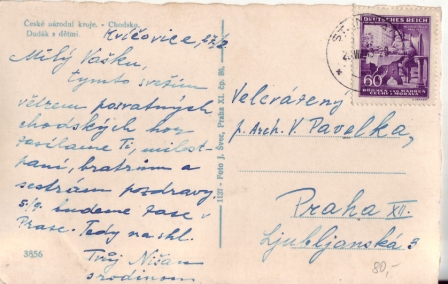 České národní kroje. - Chodsko.
Dudák s dětmi.
Milý Vašku,
tymto svežím
větrem posvatných
chodských hor
zasíláme Ti, milost
paní, bratrům a
sestrám pozdravy.
budeme zase v
Praze. Tedy na shl.
Tvůj
s rodinou
3856
1127 - Foto J. Švec, Praha XI. čp. 80.
DEUTSCHES REICH
60
BÖHMEN UND MÄHREN
ČECHY A MORAVA
Velevážený
p. Arch. V. Pavelka,
Praha XII.
Ljubljanská 5
80,-